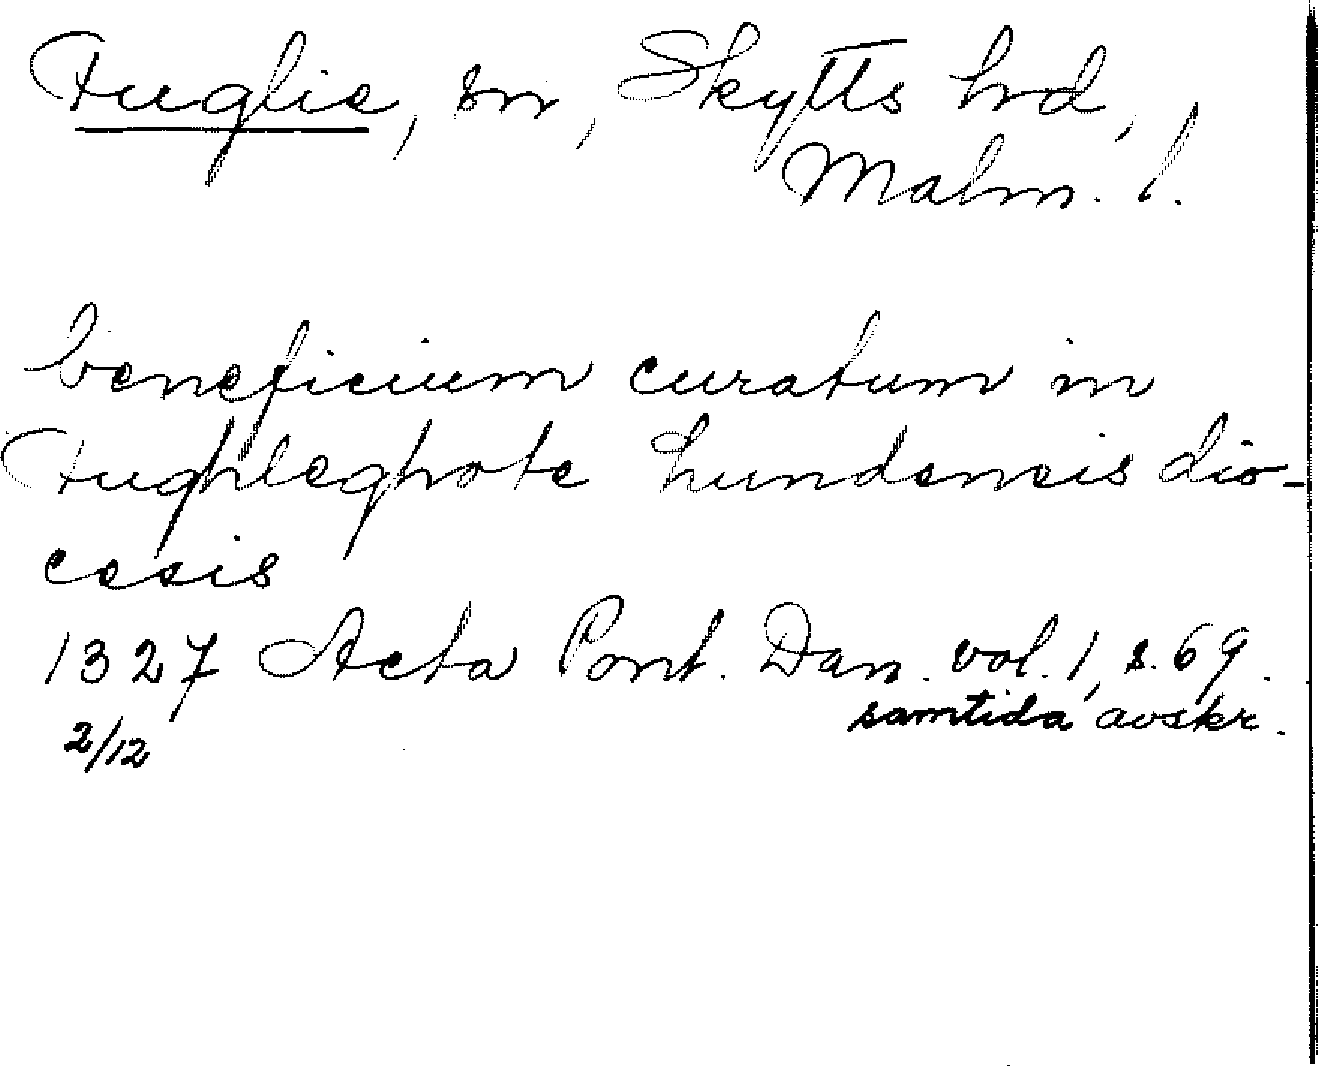 Fuglie, sn, Skytts hd,
Malm. l.
beneficium curatum in
Fughleghote Lundensis dio-
cesis
1327 Acta Pont. Dan. vol. 1, s. 69.
2/12 samtida avskr.